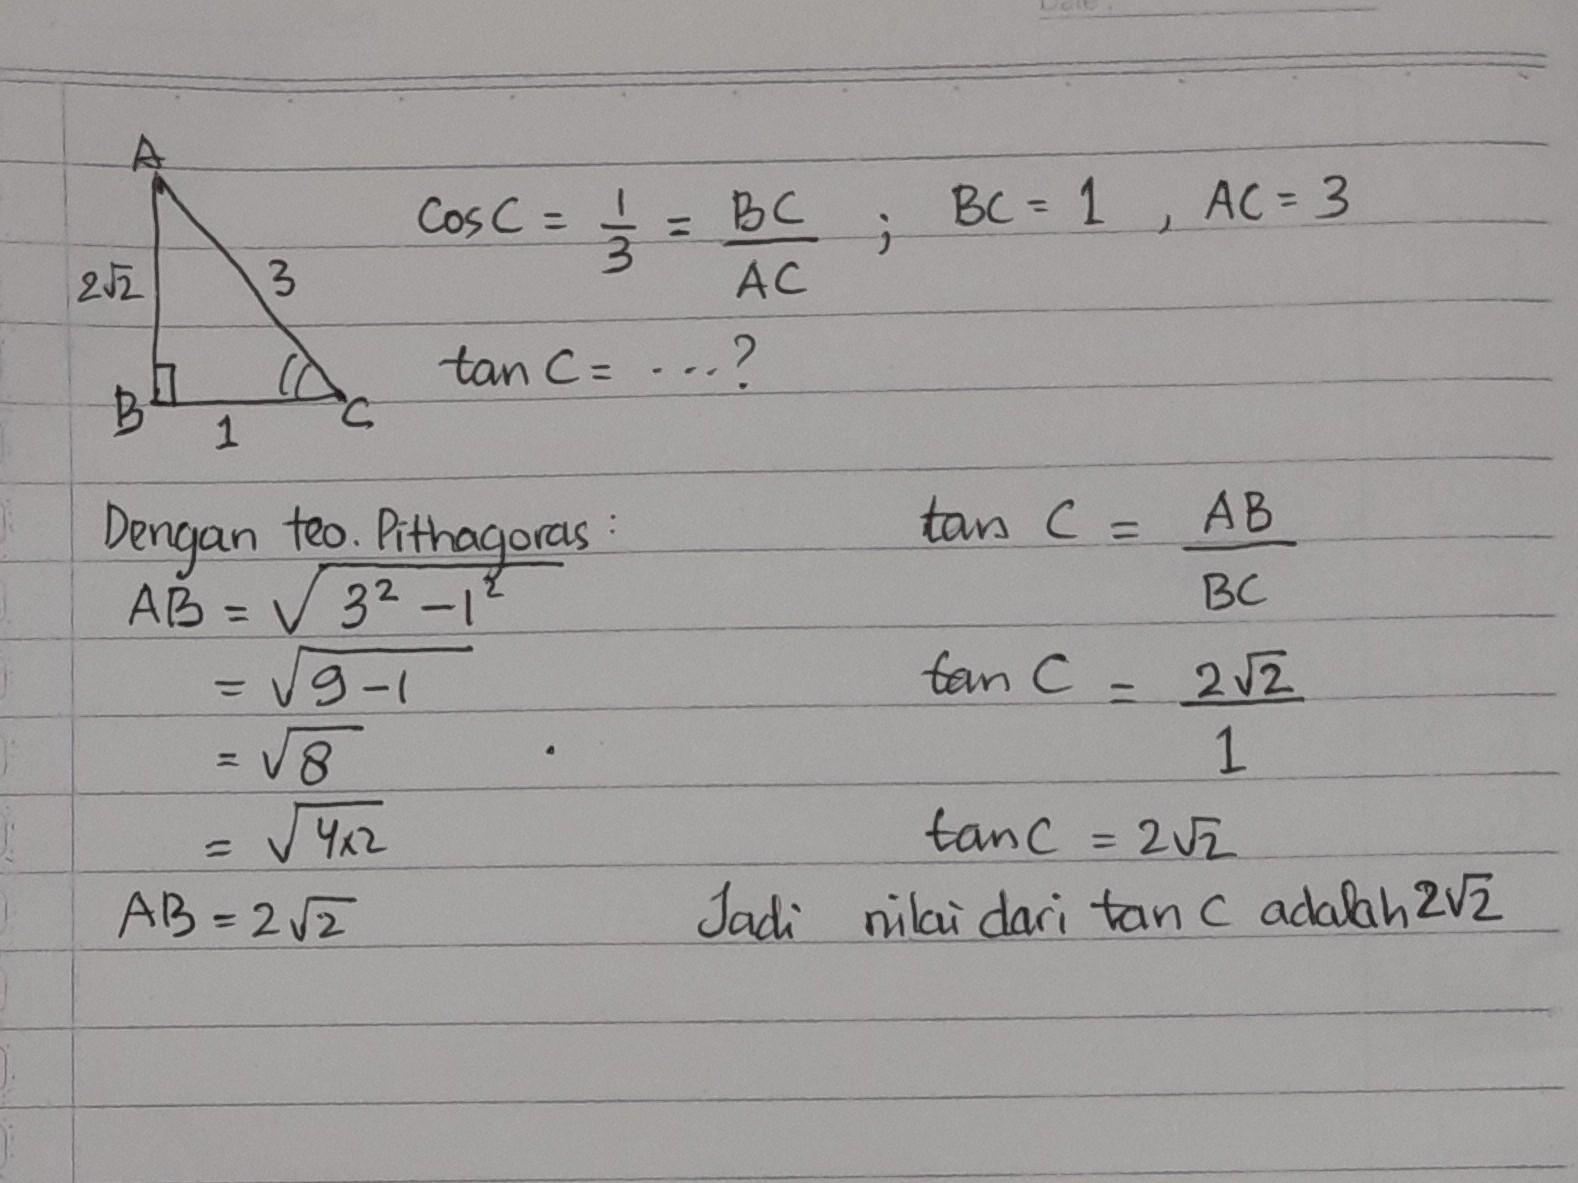 Date.
A
2√2
3
B
1
C
Cos C = 1/3 = BC/AC ; BC = 1 , AC = 3
tan C = ....?
Dengan teo. Pithagoras :
AB = √(3² - 1²)
= √(9-1)
= √8
= √(4x2)
AB = 2√2
tan C = AB/BC
tan C = 2√2/1
tan C = 2√2
Jadi nilai dari tan C adalah 2√2